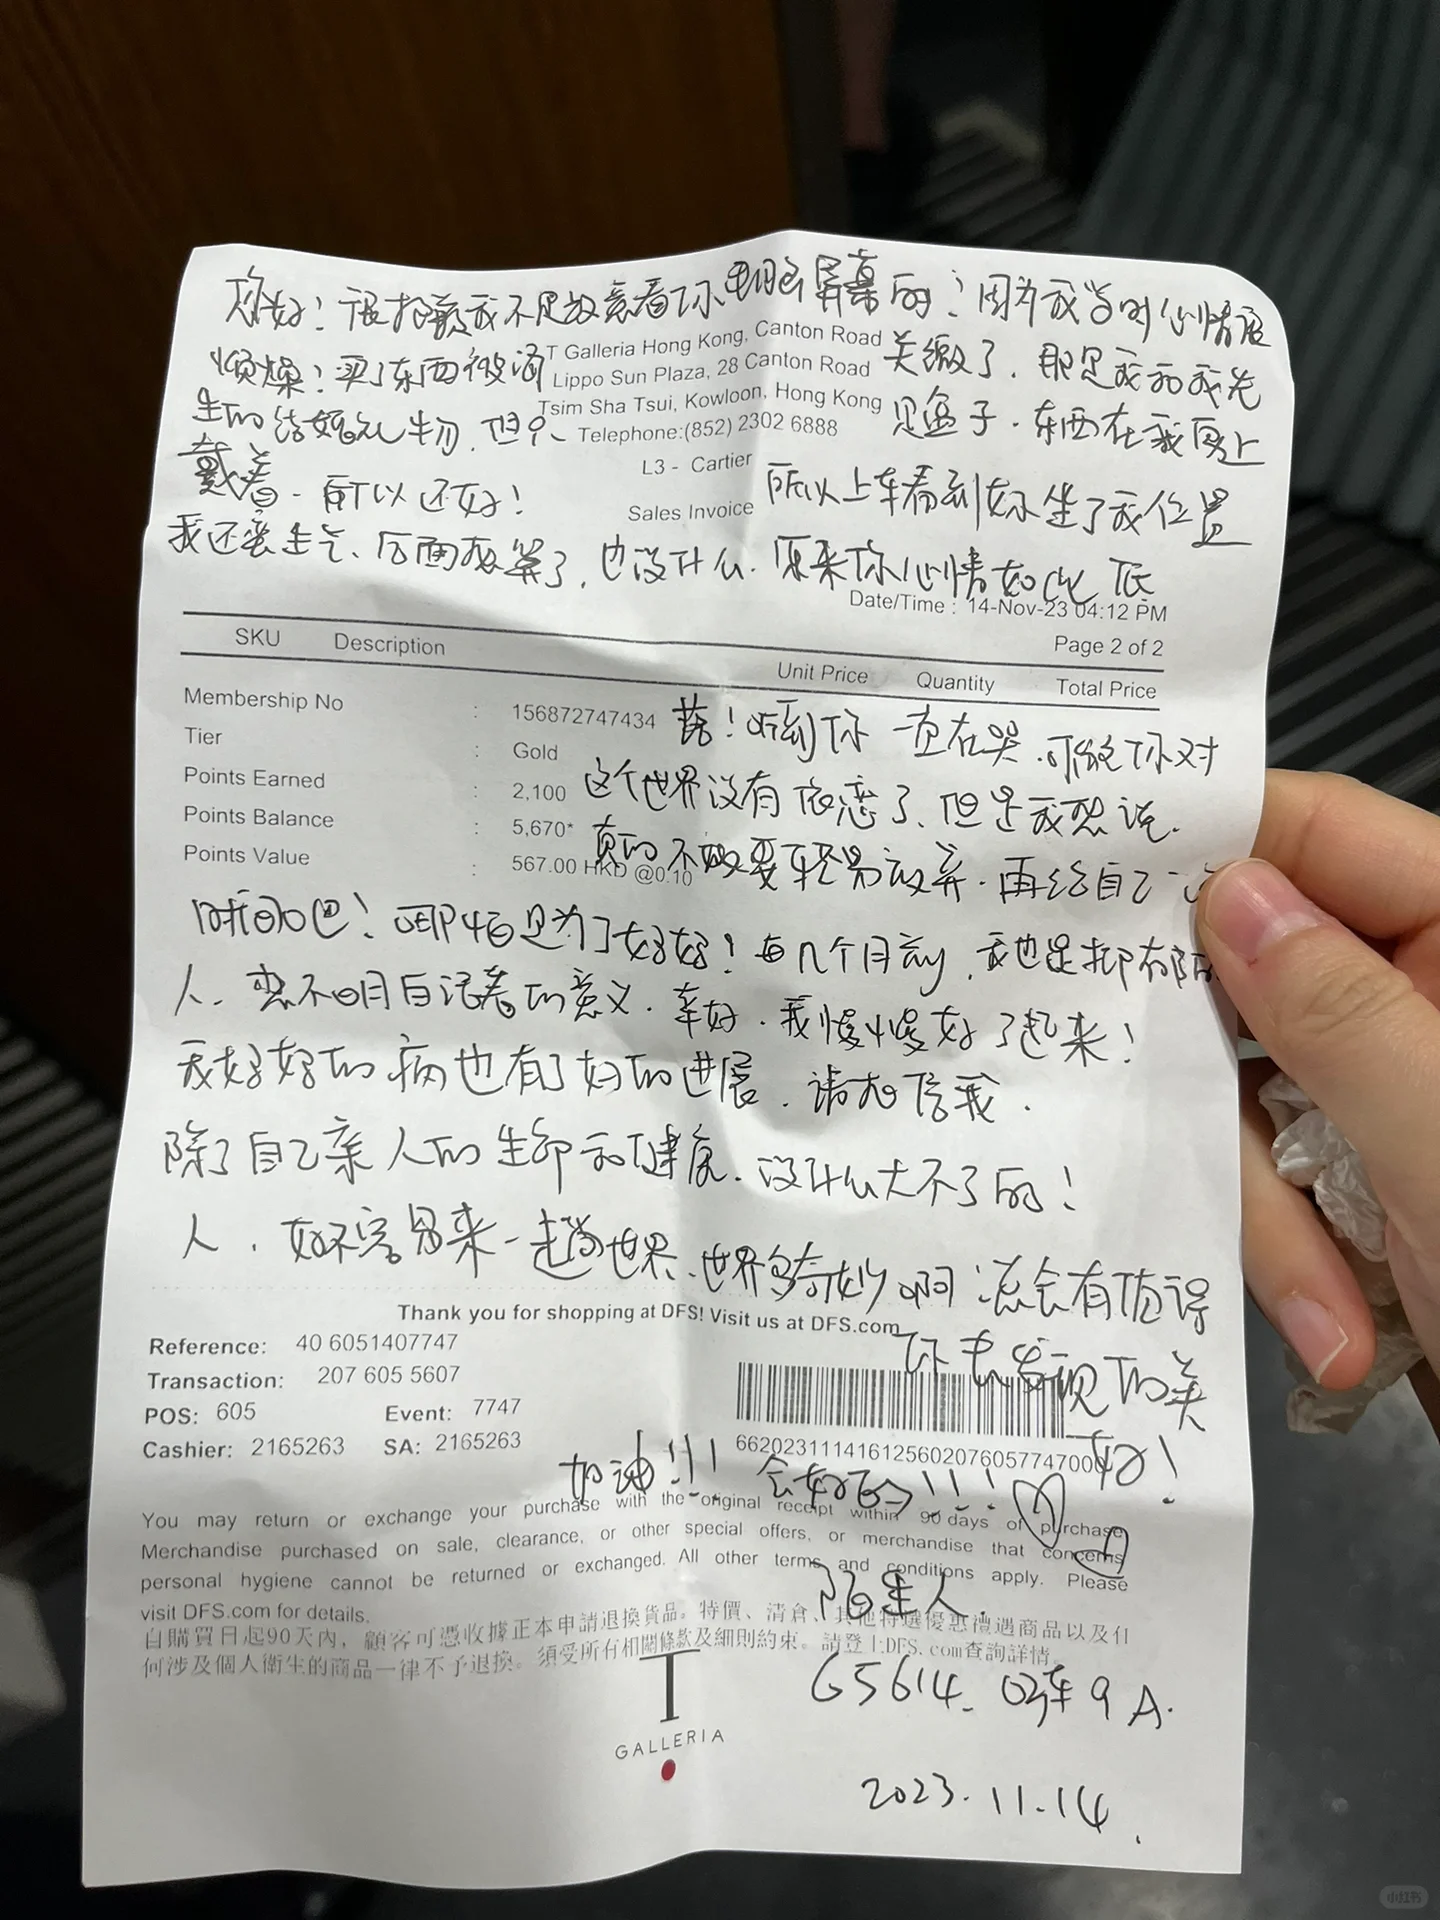 您好！很抱歉我不是故意看你电脑屏幕的！因为我当时心情很
烦燥！买了东西被海关缴了，那是我和我先
T Galleria Hong Kong, Canton Road
Lippo Sun Plaza, 28 Canton Road
生的结婚礼物，但只是盒子，东西在我身上
Tsim Sha Tsui, Kowloon, Hong Kong
Telephone:(852) 2302 6888
戴着，所以还好！
L3 - Cartier
所以上车看到你坐了我位置
Sales Invoice
我还蛮生气、后面就算了，也没什么，原来你心情如此低
Date/Time : 14-Nov-23 04:12 PM
Page 2 of 2
SKU Description Unit Price Quantity Total Price
Membership No : 156872747434
落！听到你一直在哭，可能你对
Tier : Gold
Points Earned : 2,100
这个世界没有依恋了、但是我想说，
Points Balance : 5,670*
真的不要轻易放弃，再给自己一
Points Value : 567.00 HKD @0.10
时间吧！哪怕是为了好好！每几个月前，我也是抑郁的
人，想不明白活着的意义，幸好，我慢慢好了起来！
我好好的病也有了好的进展，请相信我，
除了自己亲人的生命和健康，没什么大不了的！
人，好不容易来一趟世界、世界多奇妙啊总会有值得
Thank you for shopping at DFS! Visit us at DFS.com
你去发现的美
好！
Reference: 40 6051407747
Transaction: 207 605 5607
POS: 605 Event: 7747
Cashier: 2165263 SA: 2165263
66202311141612560207605774700
加油!!! 会好的!!!
You may return or exchange your purchase with the original receipt within 90 days of purchase
Merchandise purchased on sale, clearance, or other special offers, or merchandise that concerns
personal hygiene cannot be returned or exchanged. All other terms and conditions apply. Please
visit DFS.com for details.
陌生人.
自購買日起90天內，顧客可憑收據正本申請退換貨品。特價、清倉、其他特選優惠禮遇商品以及任
何涉及個人衛生的商品一律不予退換。須受所有相關條款及細則約束。請登上DFS.com查詢詳情。
G5614. 02车9A.
T
GALLERIA
2023.11.14.
小红书